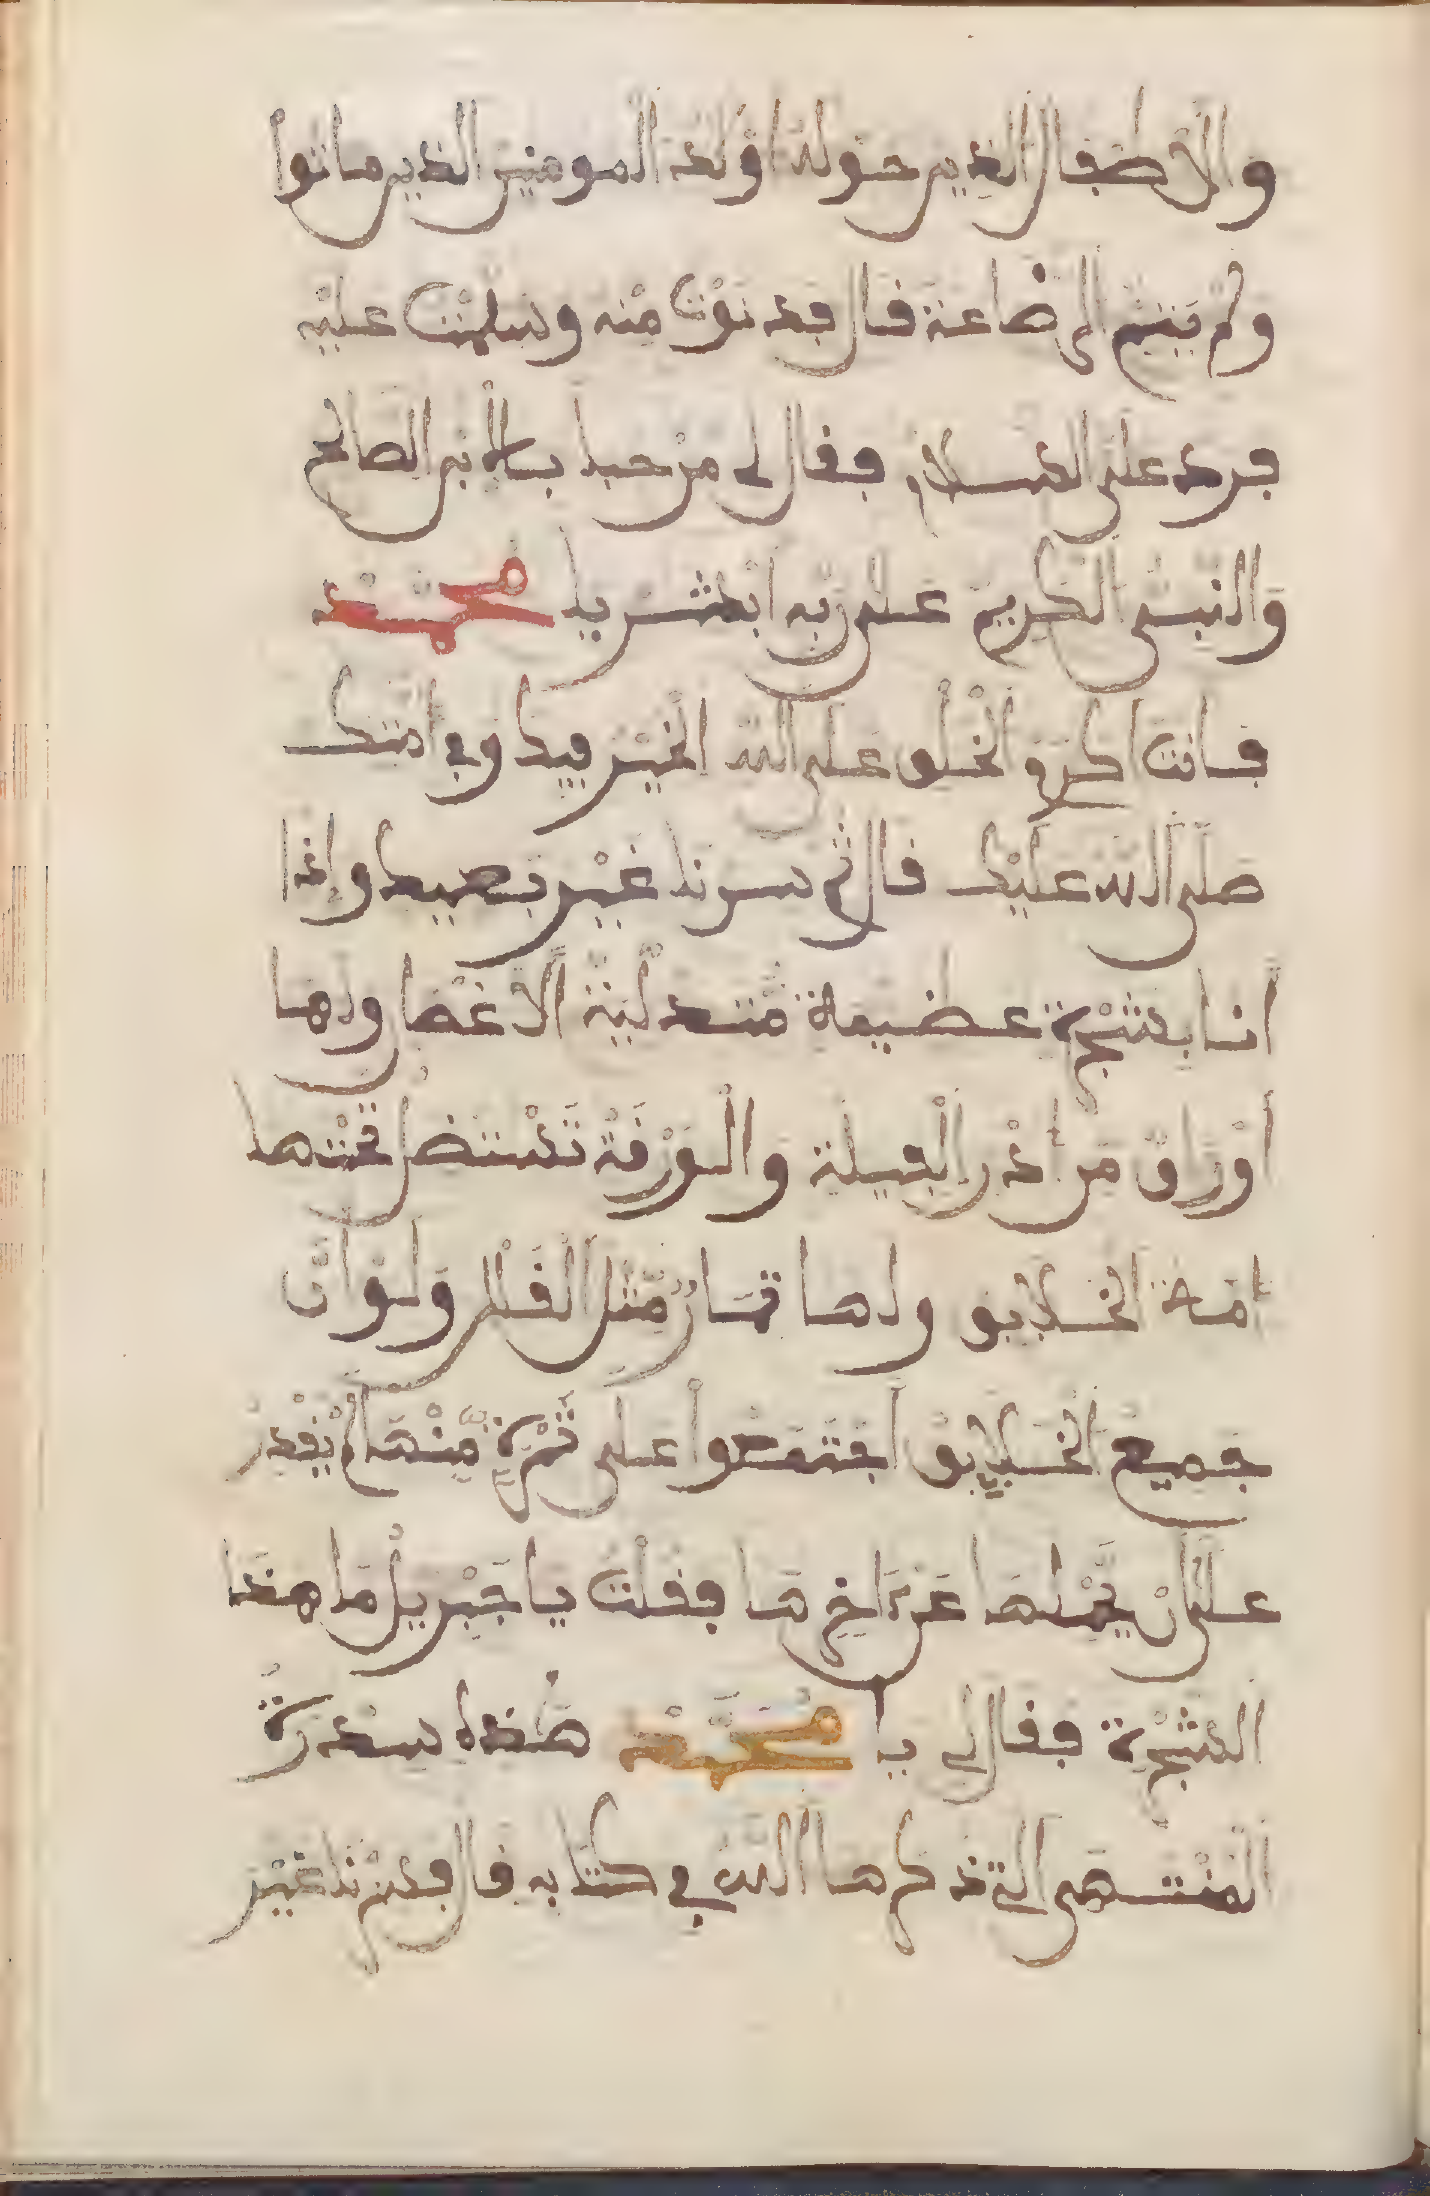 والاطفال الذين حوله اولاد المومنين الذين ماتوا
ولم ينتم الى ضاعة قال فدنوت منه وسلمت عليه
فرد على السلام فقال لى مرحبا بالابن الصالح
والنبى الكريم على ربه ابشر يا محمد
فانت اكرم الخلق على الله الخير فيك وفى امتك
صلى الله عليك قال ثم سرنا غير بعيد واذا
انا بشجرة عضيمة متدلية الاغصان ولها
اوراق من اذن الفيلة والورقة تستضل تحتها
امة الخلايق ولها ثمار مثل القلل ولو ان
جميع الخلايق اجتمعوا على ثمرة منها لم يقدر
على ان يحملها عن اخرها فقلت يا جبريل ما هذا
الشجرة فقال لى يا محمد هذه سدرة
المنتهى التى ذكرها الله فى كتابه قال فسرنا غير